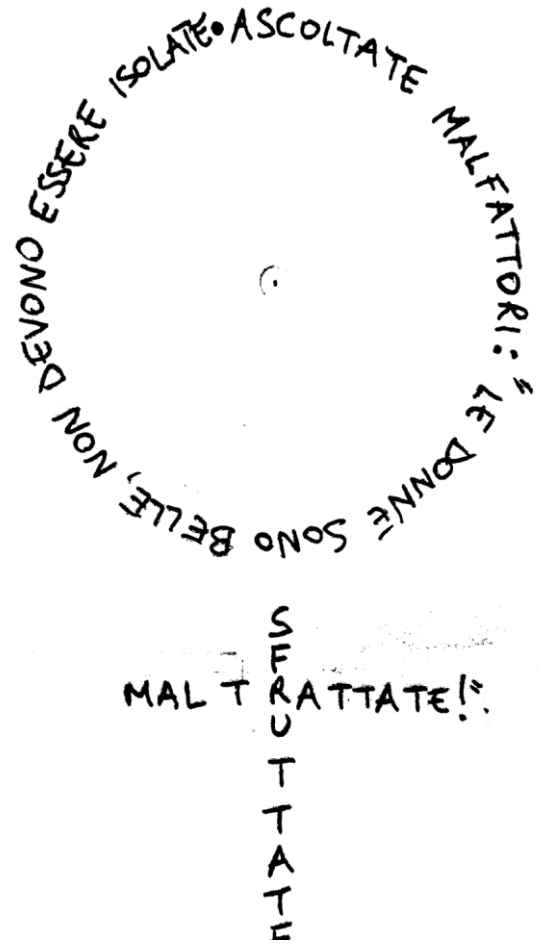 ASCOLTATE MALFATTORI: "LE DONNE SONO BELLE, NON DEVONO ESSERE ISOLATE•
SFRUTTATE
MALTRATTATE!".